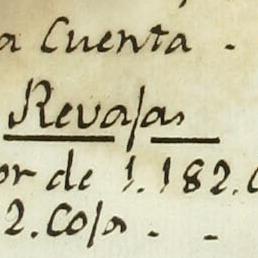 a Cuenta .
Revajas
or de 1.182.
2. Coja . .